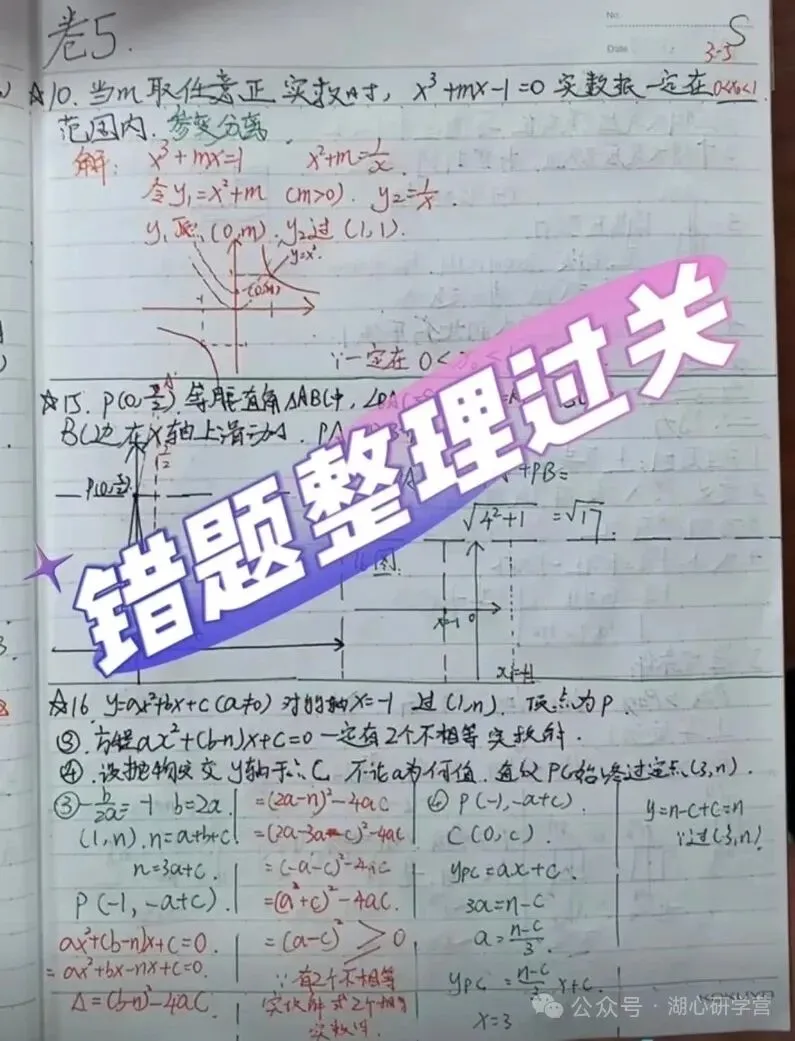 卷5.
No.
Date
S
3-5
☆10. 当m取任意正实数时, x³+mx-1=0 实数根一定在 0<x₀<1
范围内. 参变分离
解: x³+mx=1 x²+m=1/x.
令y₁=x²+m (m>0). y₂=1/x.
(0,m). y₂过(1,1).
y=x²
(0,m)
∵一定在 0<x₀<
☆15. P(0, 等腰直角△ABC中,
BC边在x轴上滑动时. PA
+PB=
√4²+1 = √17.
图.
x=-1 0
错题整理过关
☆16. y=ax²+bx+c (a≠0) 对称轴x=-1 过(1,n). 顶点为P.
③. 方程ax²+(b-n)x+c=0 一定有2个不相等实数解.
④. 设抛物线交y轴于点C, 不论a为何值. 直线PC始终过定点(3,n).
③ -b/2a=-1 b=2a.
(1,n), n=a+b+c
n=3a+c.
P(-1,-a+c).
ax²+(b-n)x+c=0.
=ax²+bx-nx+c=0.
Δ=(b-n)²-4ac.
=(2a-n)²-4ac
=(2a-3a-c)²-4ac
=(-a-c)²-4ac
=(a+c)²-4ac.
=(a-c)² ≥0
∵有2个不相等
实数解或2个相等
实数解.
④ P(-1,-a+c).
C(0,c).
yPC=ax+c.
3a=n-c
a=n-c/3.
yPC=n-c/3 x+c.
x=3
y=n-c+c=n
∵过(3,n)
KOKUYO
公众号 · 湖心研学营